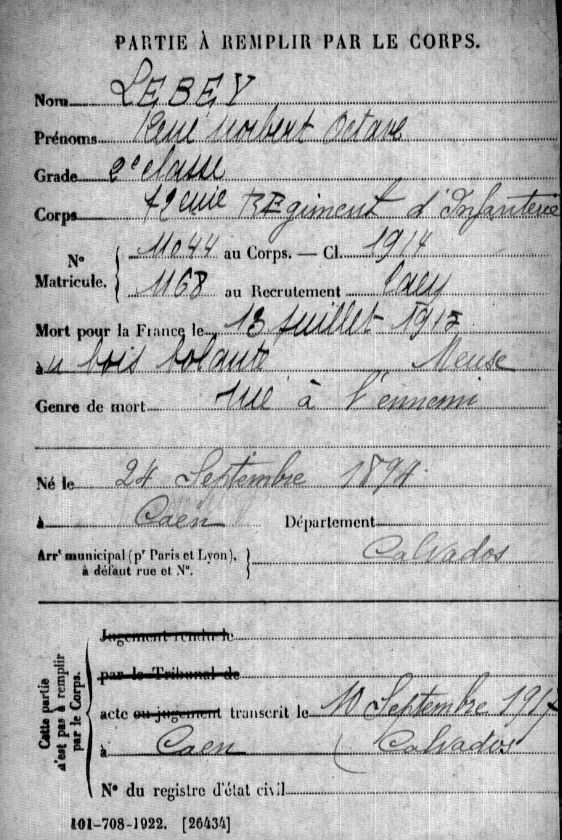 PARTIE À REMPLIR PAR LE CORPS.
Nom LEBEY
Prénoms René Norbert Octave
Grade 2e classe
Corps 72eme REgiment d'Infanterie
N° Matricule. 11044 au Corps. — Cl. 1914
1168 au Recrutement Caen
Mort pour la France le 13 juillet
au bois bolante Meuse
Genre de mort tué à l'ennemi
Né le 24 Septembre 1894
à Caen Département
Arrt municipal (pr Paris et Lyon), à défaut rue et N°. Calvados
Cette partie n'est pas à remplir par le Corps.
Jugement rendu le
par le Tribunal de
acte ou jugement transcrit le 10 Septembre
à Caen (Calvados
N° du registre d'état civil
101-708-1922. [26434]